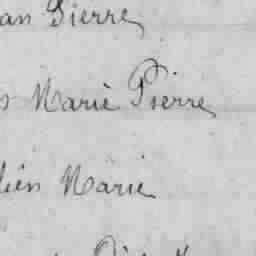 an Pierre
s Marie Pierre
lien Marie